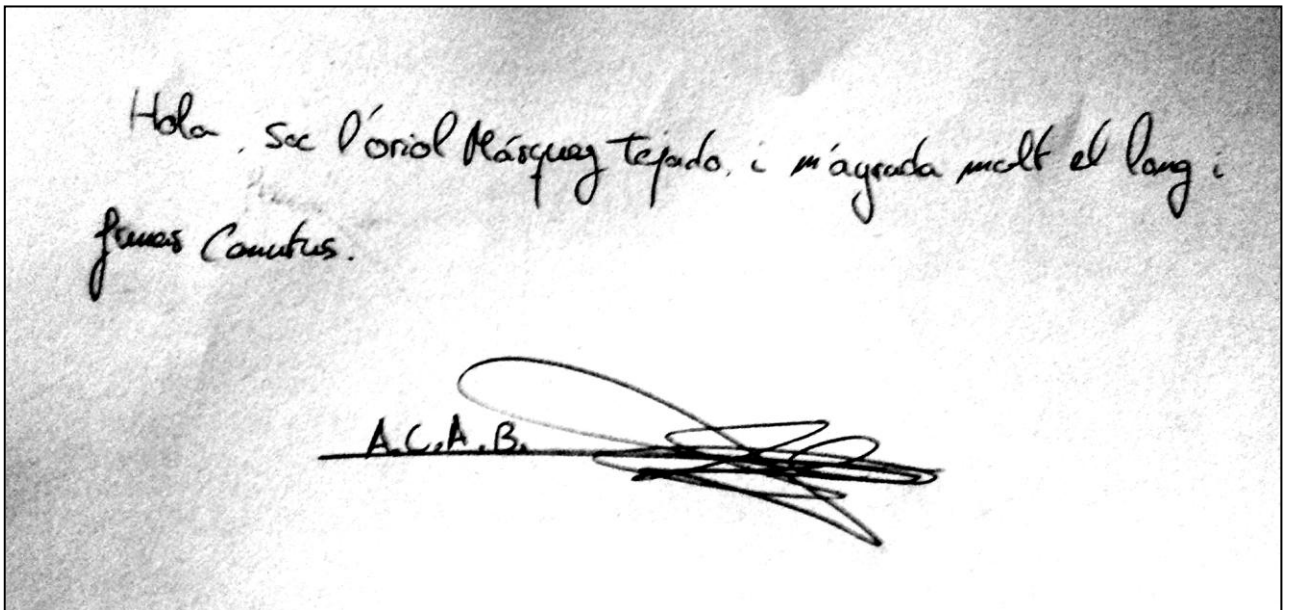 Hola, soc l'oriol Màrquez Tejado, i m'agrada molt el lang i
Canutus.
A.C.A.B.